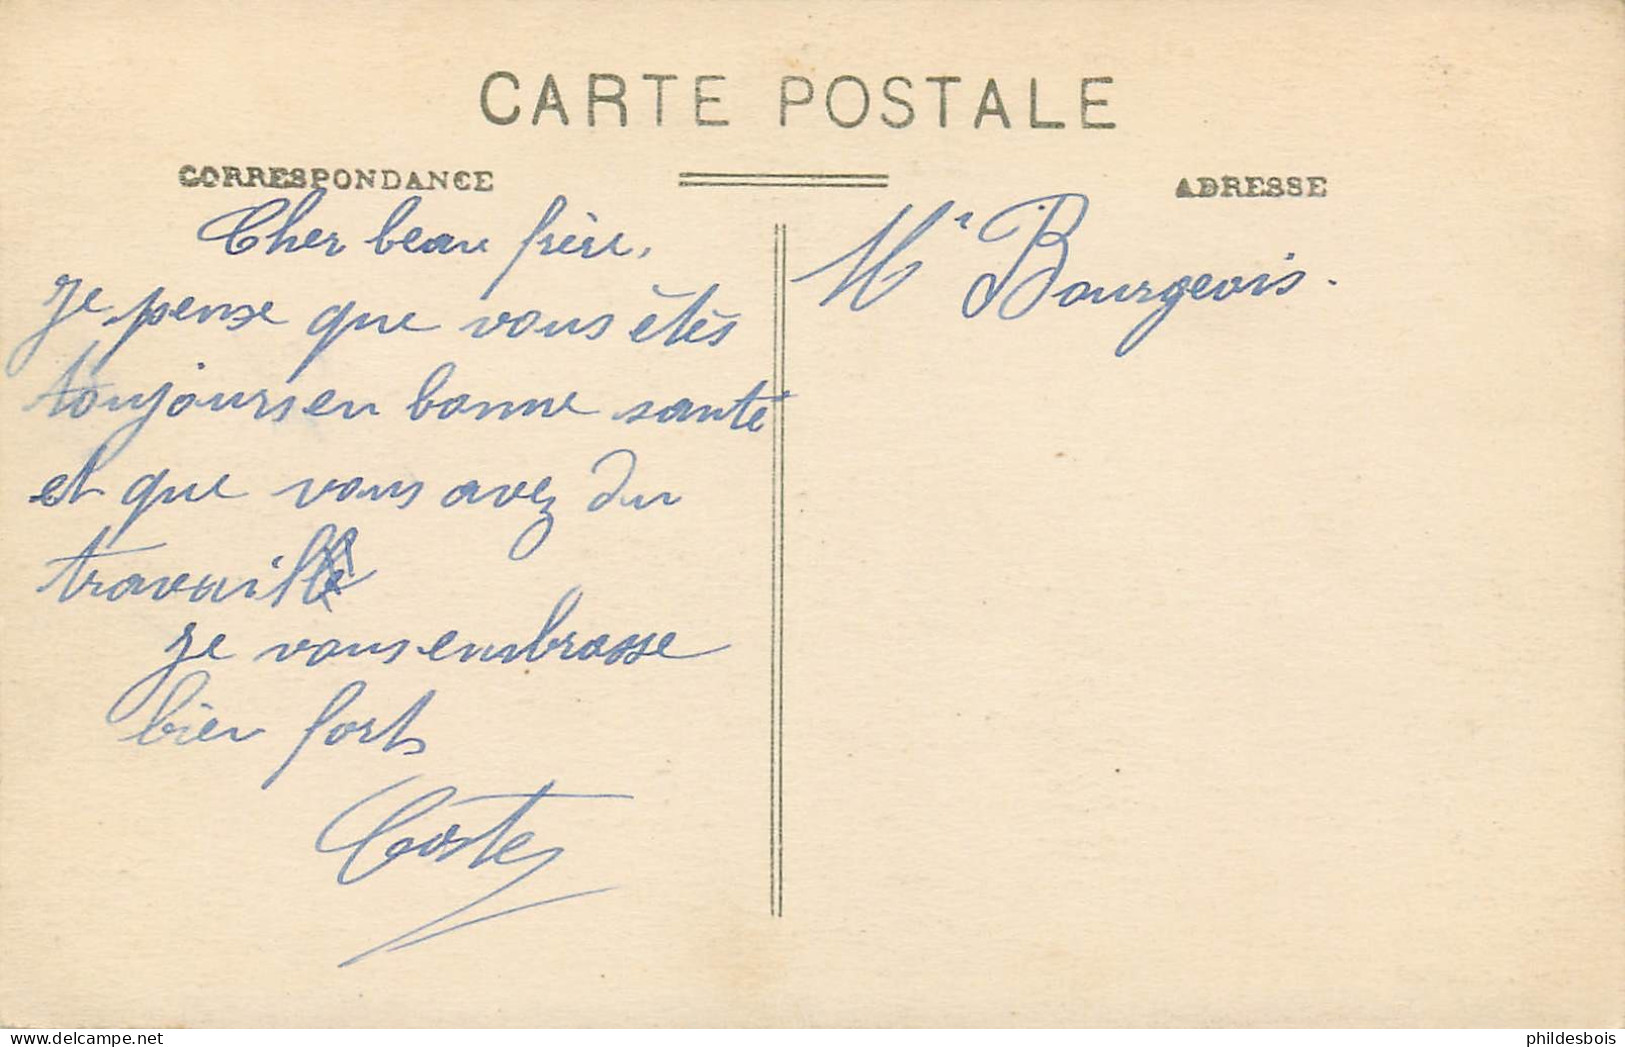 CARTE POSTALE
CORRESPONDANCE
ADRESSE
Cher beau frère,
Je pense que vous étés
toujours en bonne santé
et que vous avez du
travail
Je vous embrasse
bien forts
Costes
Mr Bourgeois.
delcampe.net
phildesbois